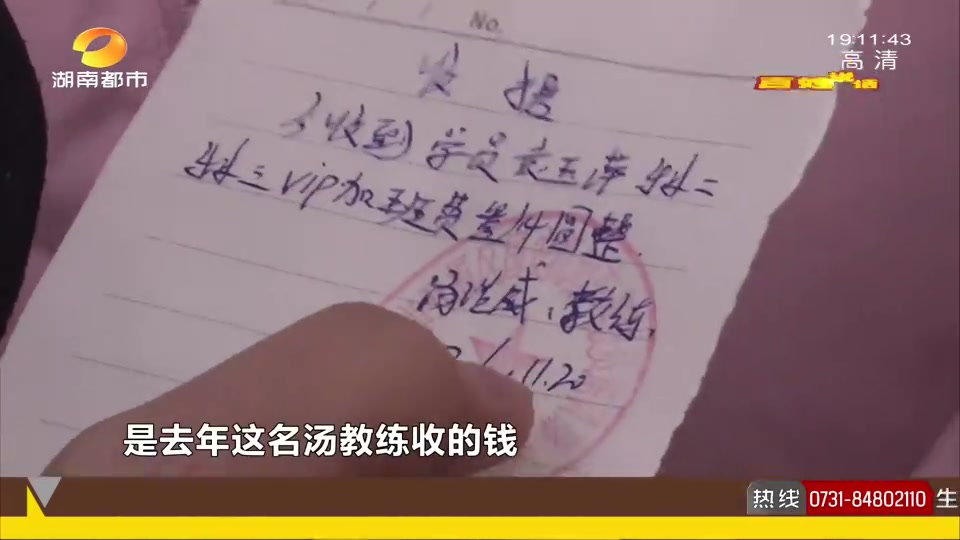 湖南都市
19:11:43
高清
百姓说话
No.
收据
今收到学员袁玉萍科二
科三vip加班费叁仟圆整.
汤洪威、教练.
11.20
是去年这名汤教练收的钱
热线 0731-84802110 生